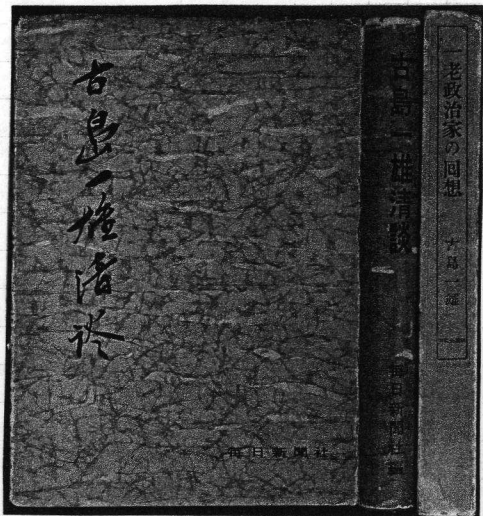 古島一雄清談
毎日新聞社
古島一雄清談
毎日新聞社編
一老政治家の回想
古島一雄